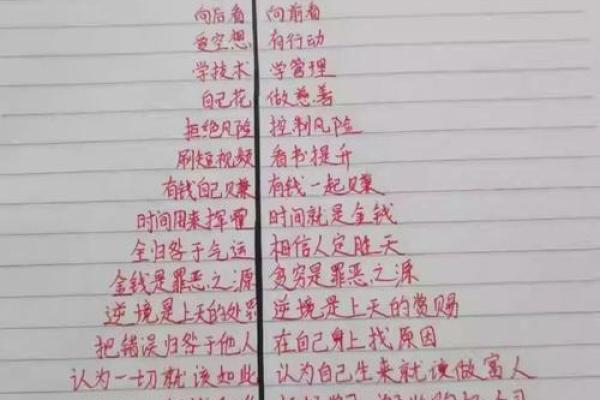 向后看 向前看
爱空想 有行动
学技术 学管理
自己花 做慈善
拒绝风险 控制风险
刷短视频 看书提升
有钱自己赚 有钱一起赚
时间用来挥嚯 时间就是金钱
全归咎于气运 相信人定胜天
金钱是罪恶之源 贫穷是罪恶之源
逆境是上天的处罚 逆境是上天的赏赐
把错误归咎于他人 在自己身上找原因
认为一切就该如此 认为自己生来就该做富人